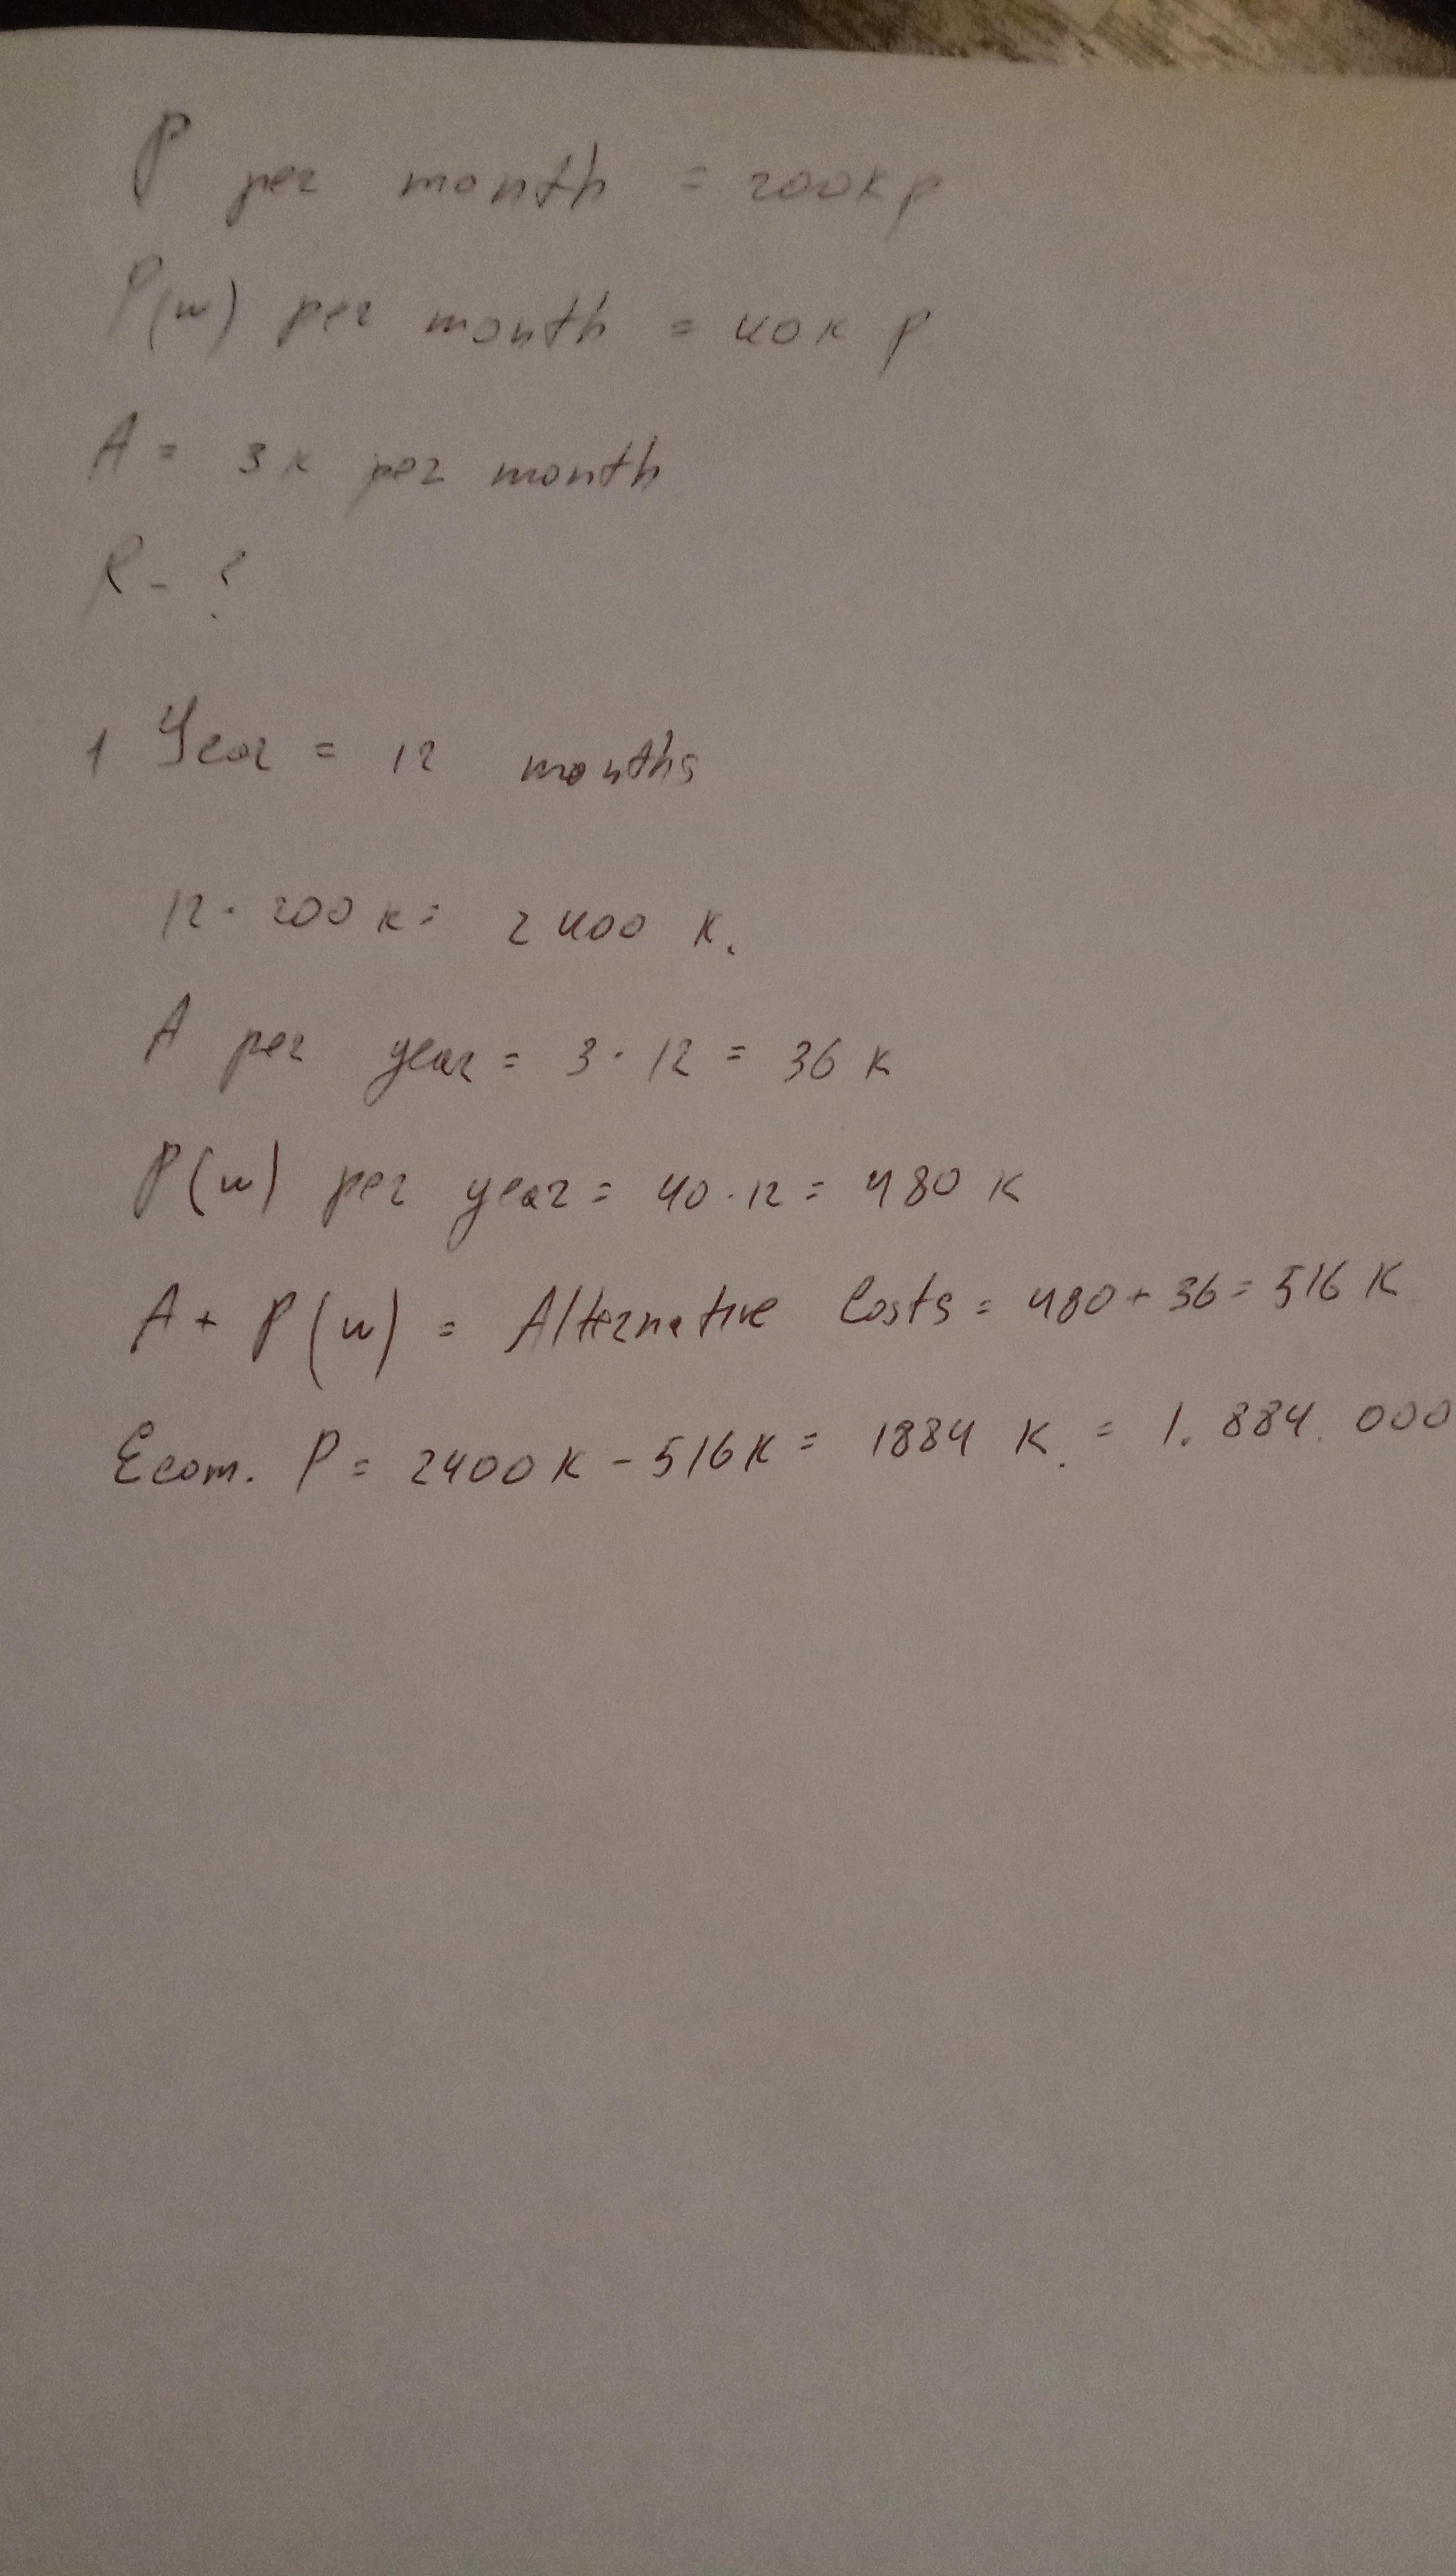 P per month = 200k р
P(w) per month = 40k р
A = 3k per month
R - ?
1 Year = 12 months
12 · 200 k = 2400 k.
A per year = 3 · 12 = 36 k
P(w) per year = 40 · 12 = 480 k
A + P(w) = Alternative Costs = 480 + 36 = 516 k
Econ. P = 2400k - 516k = 1884 k. = 1.884.000